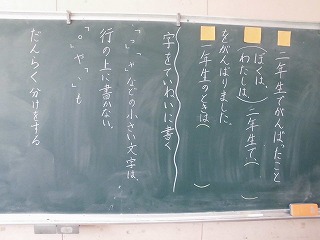 二年生でがんばったこと
(ぼくは、わたしは、)二年生で、(　　)
をがんばりました。
一年生のときは(　　)
字をていねいに書く
「っ」「ょ」などの小さい文字は、
行の上に書かない。
「。」や「、」も
だんらく分けをする